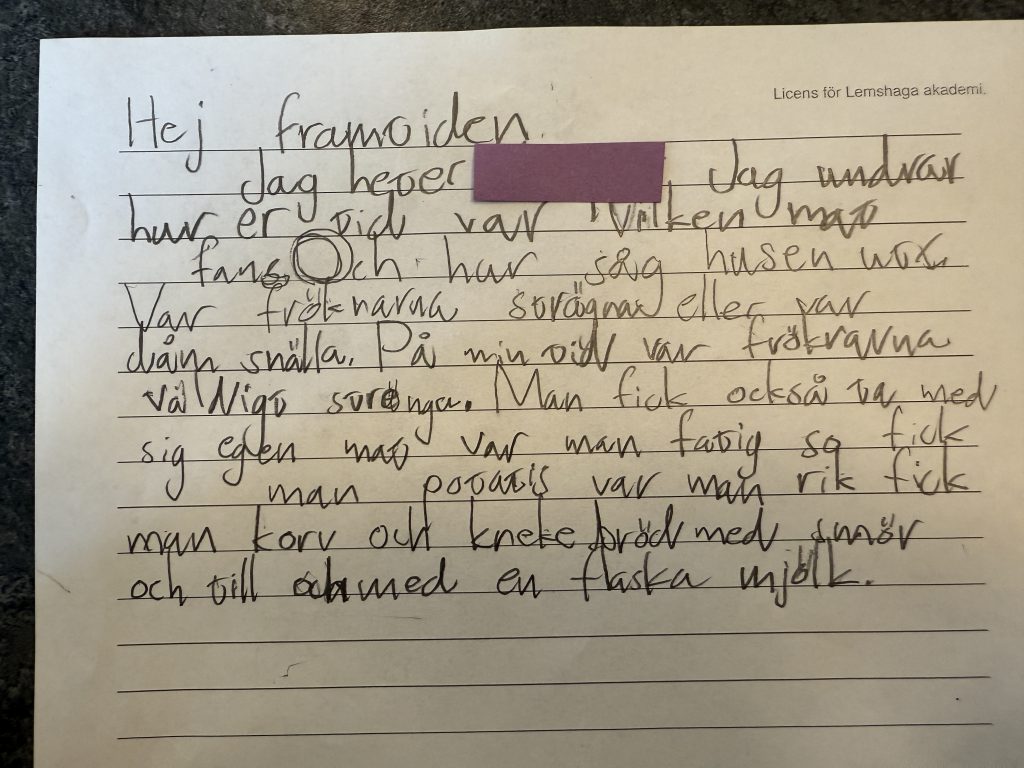 Licens för Lemshaga akademi.
Hej framtiden.
Jag heter , Jag undrar
hur er tid var Vilken mat
fans Och hur såg husen ut.
Var fröknarna strägnar eller var
däm snälla. På min tid var frökrarna
väldigt stränga. Man fick också ta med
sig egen mat var man fatig så fick
man potatis var man rik fick
man korv och kneke bröd med smör
och till och med en flaska mjölk.